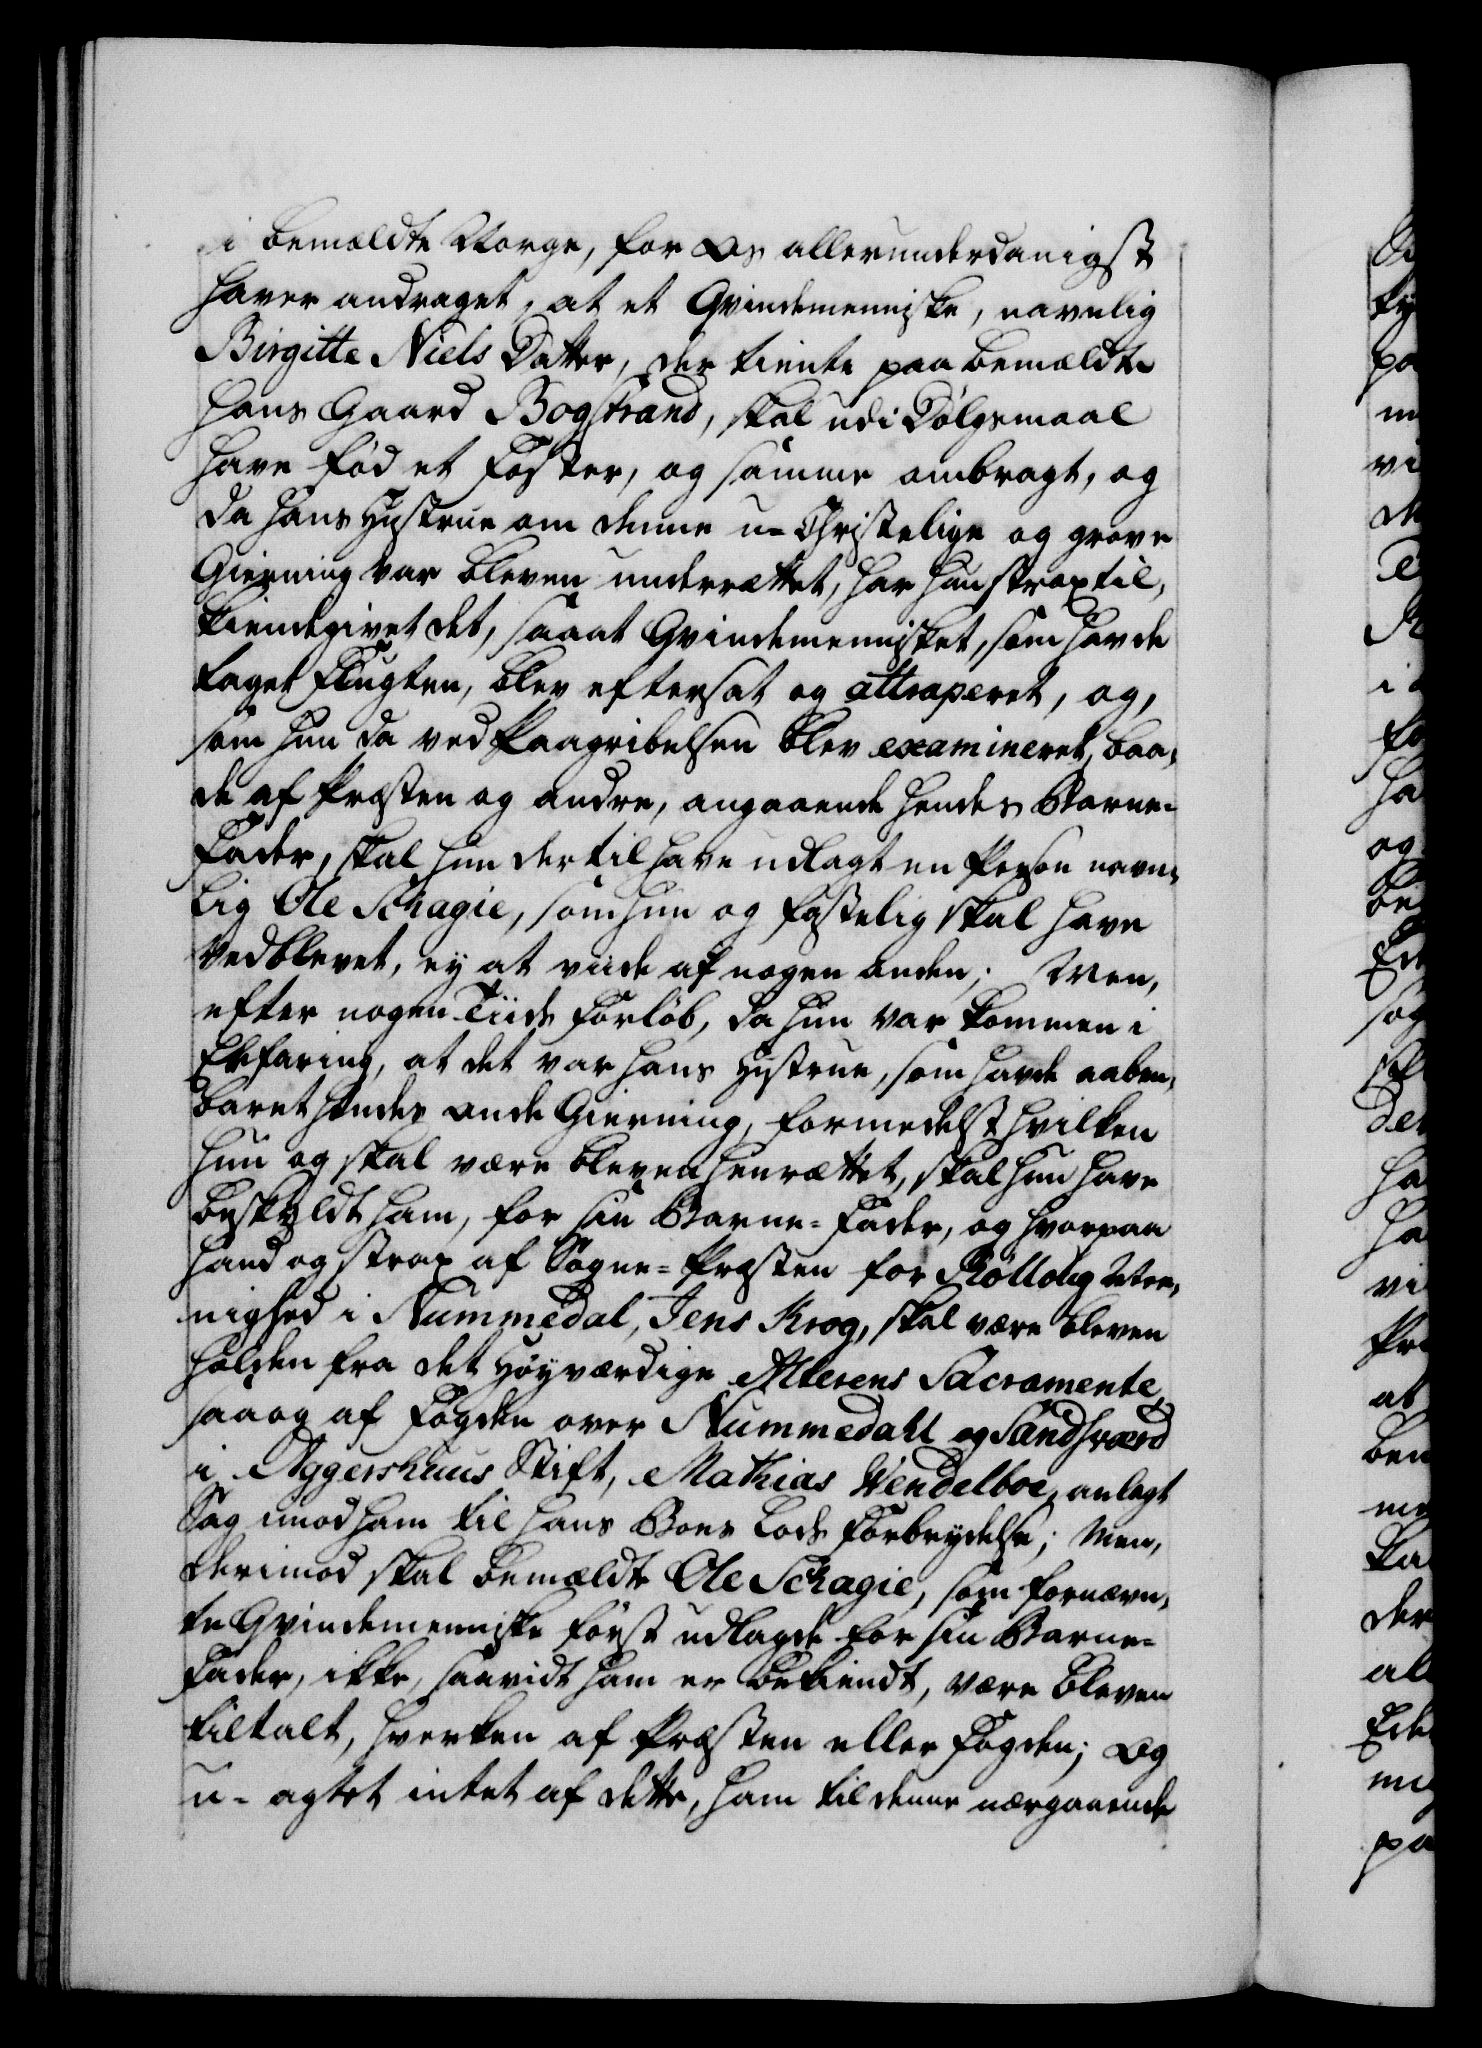 i bemældte Norge, for Os allerunderdanigst
haver andraget, at et Qvindemenniske, navnlig
Birgitte Niels Datter, der tiente paa bemældte
hans Gaard Bogstrand, skal udi Dølgsmaal
have fød et Foster, og samme ombragt, og
da hans Hustrue om denne u-Christelige og grove
Gierning var bleven underrættet, har hun strax til,
kiendegivet det, saaat Qvindemennisket, som havde
taget Flugten, blev eftersat og attraperet, og,
som hun da ved Paagribelsen blev examineret, baa,
de af Præsten og andre, angaaende hendes Barne-
Fader, skal hun dertil have udlagt en Person navn,
lig Ole Schagie, som hun og fastelig skal have
vedblevet, ey at viide af nogen anden; Men,
efter nogen Tiids Forløb, da hun var kommen i
Erfaring, at det var hans Hustrue, som havde aaben,
baret hendes onde Gierning, formedelst hvilken
hun og skal være bleven henrættet, skal hun have
beskyldt ham, for sin Barne-Fader, og hvorpaa
hand og strax af Sogne-Præsten for Rollong Mee,
nighed i Nummedal, Jens Krog, skal være bleven
holden fra det Høyværdige Alterens Sacramente,
saa og af Fogden over Nummedahl og Sandsværd
i Aggershuus Stift, Mathias Wendelboe, anlagt
Sag imod ham til hans Boes Lods Forbrydelse; Men,
derimod skal bemældte Ole Schagie, som fornævn,
te Qvindemenniske først udlagde for sin Barne-
Fader, ikke, saavidt ham er bekiendt, være bleven
tiltalt, hverken af Præsten eller Fogden; Og
u-agtet intet af dette, ham til denne nærgaaende